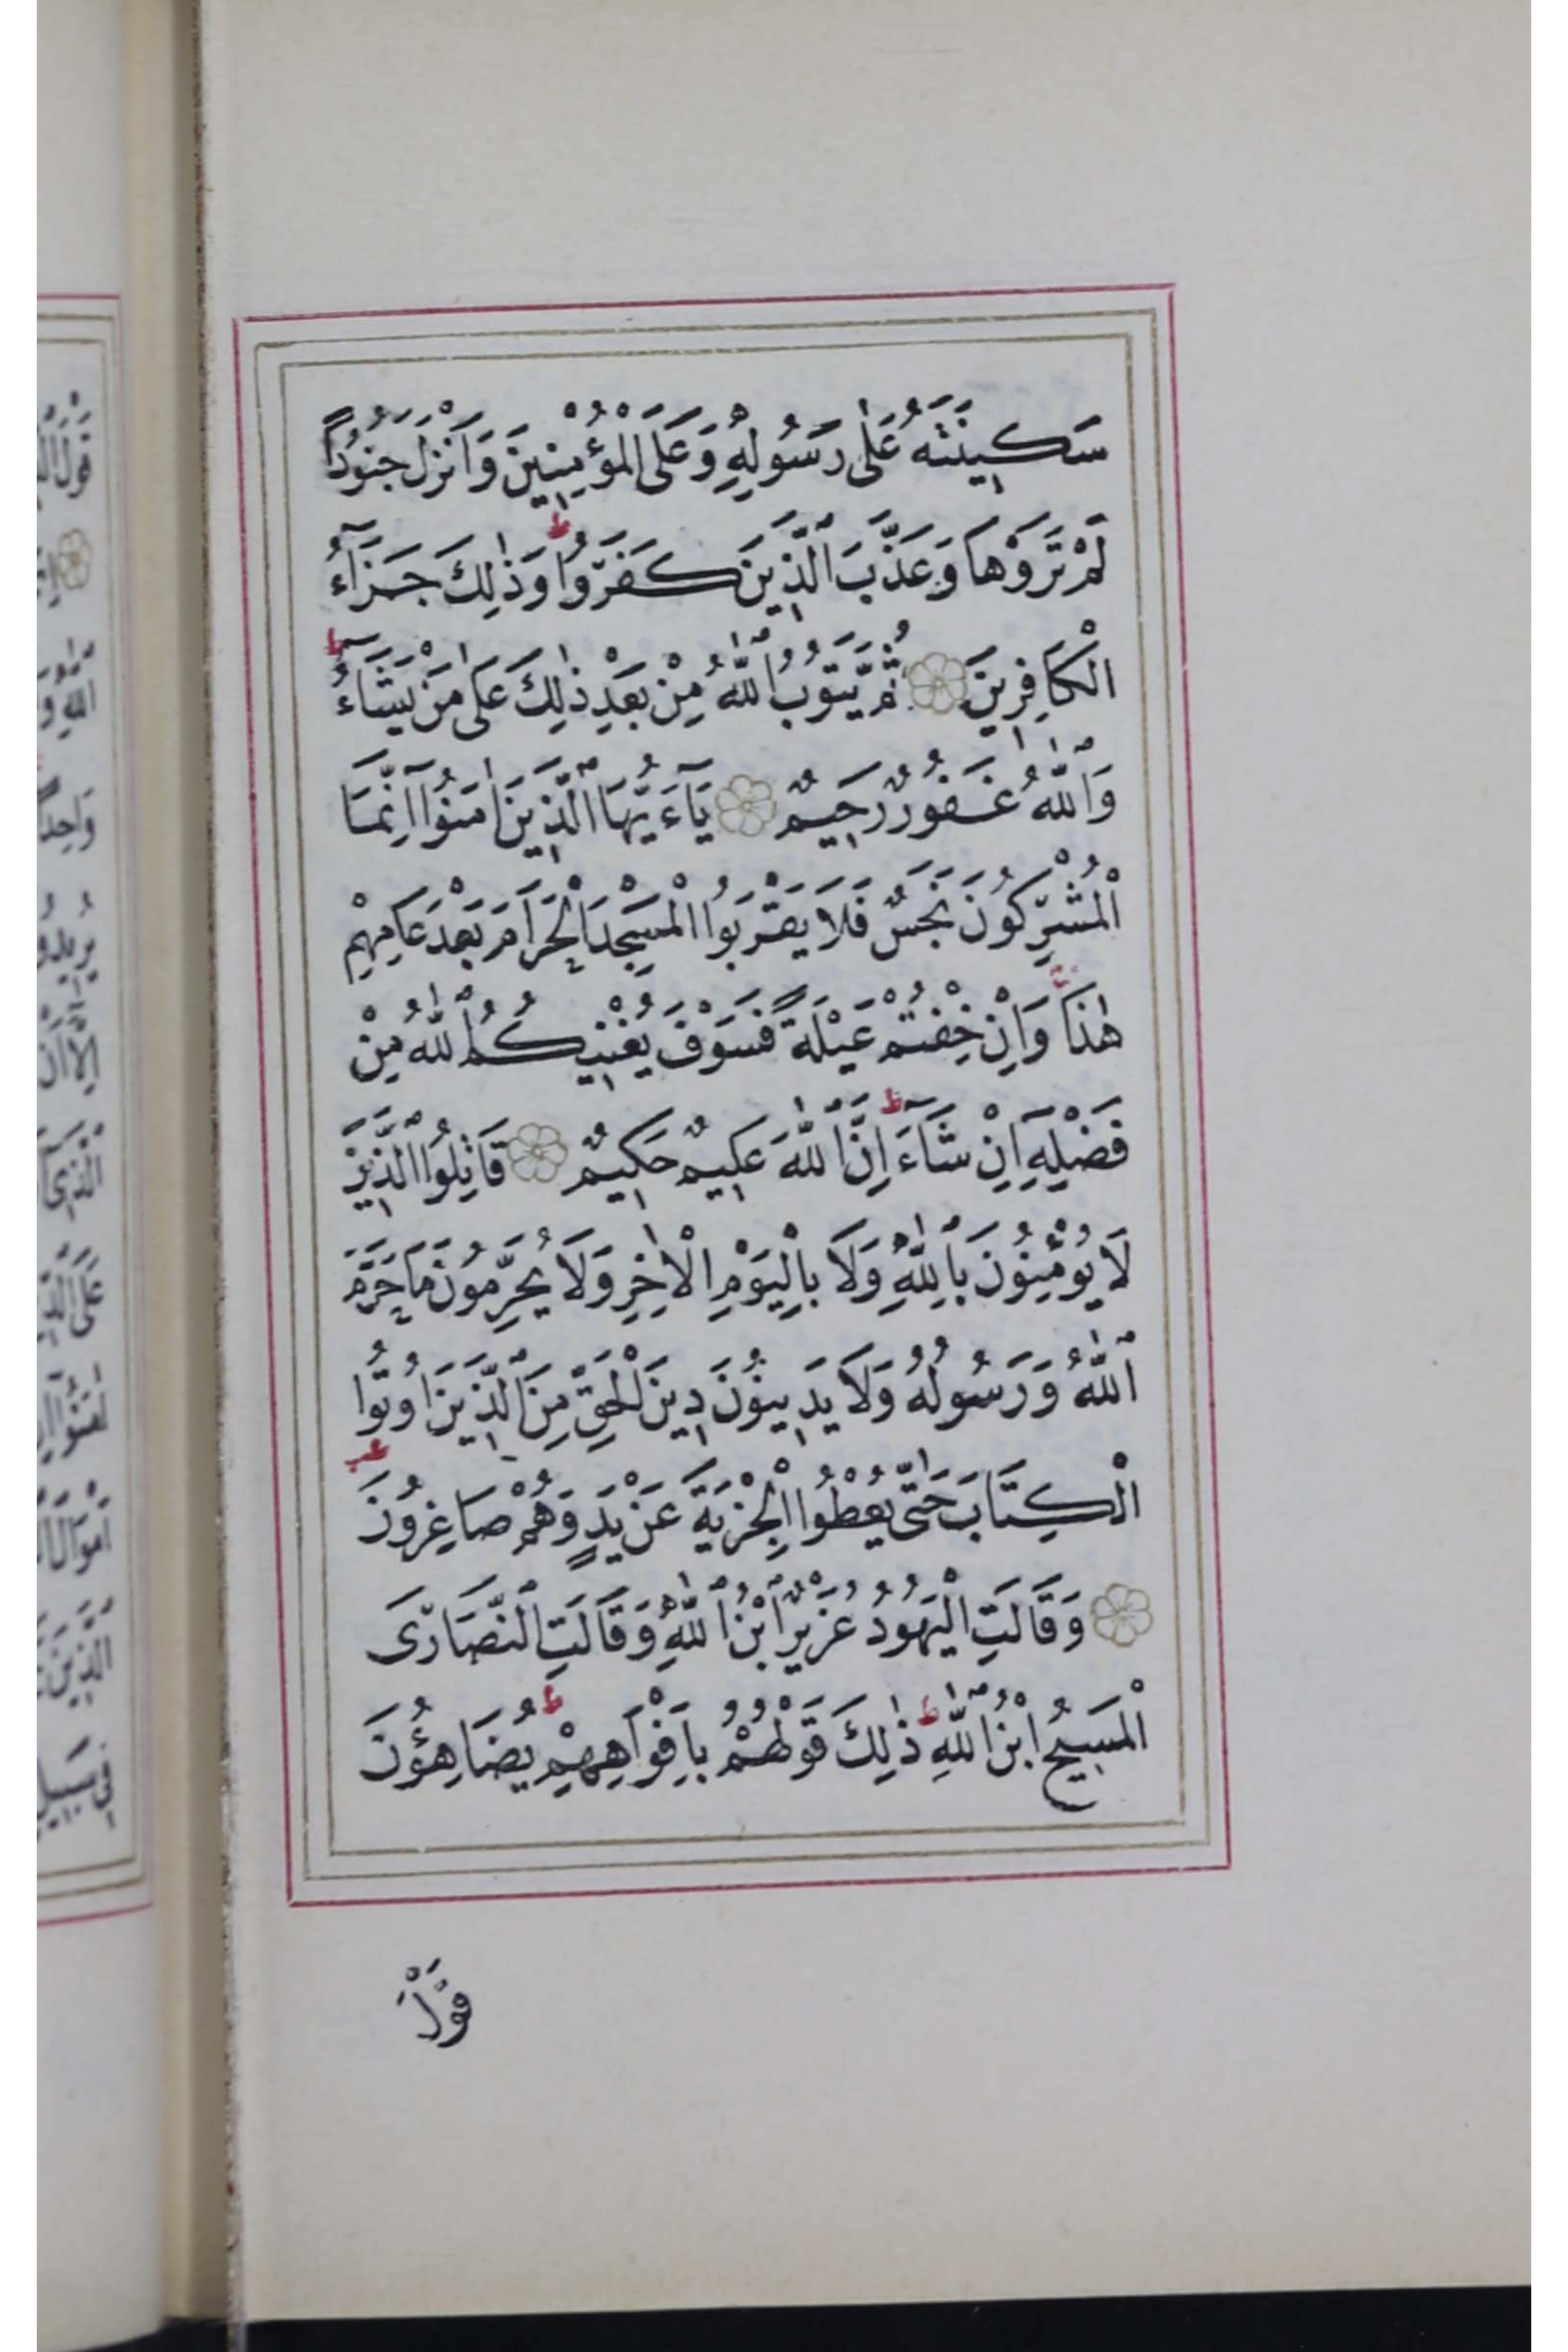 سَكِينَتَهُ عَلٰى رَسُولِهِ وَعَلَى الْمُؤْمِنِينَ وَاَنْزَلَ جُنُودًا
لَمْ تَرَوْهَا وَعَذَّبَ الَّذِينَ كَفَرُوا ط وَذٰلِكَ جَزَآءُ
الْكَافِرِينَ ۝ ثُمَّ يَتُوبُ اللّٰهُ مِنْ بَعْدِ ذٰلِكَ عَلٰى مَنْ يَشَآءُ ط
وَاللّٰهُ غَفُورٌ رَحِيمٌ ۝ يَآءَيُّهَا الَّذِينَ اٰمَنُوآ اِنَّمَا
الْمُشْرِكُونَ نَجَسٌ فَلَا يَقْرَبُوا الْمَسْجِدَ الْحَرَامَ بَعْدَ عَامِهِمْ
هٰذَا وَاِنْ خِفْتُمْ عَيْلَةً فَسَوْفَ يُغْنِيكُمُ اللّٰهُ مِنْ
فَضْلِهِ اِنْ شَآءَ ط اِنَّ اللّٰهَ عَلِيمٌ حَكِيمٌ ۝ قَاتِلُوا الَّذِينَ
لَا يُؤْمِنُونَ بِاللّٰهِ وَلَا بِالْيَوْمِ الْاٰخِرِ وَلَا يُحَرِّمُونَ مَا حَرَّمَ
اللّٰهُ وَرَسُولُهُ وَلَا يَدِينُونَ دِينَ الْحَقِّ مِنَ الَّذِينَ اُوتُوا
الْكِتَابَ حَتّٰى يُعْطُوا الْجِزْيَةَ عَنْ يَدٍ وَهُمْ صَاغِرُونَ
۝ وَقَالَتِ الْيَهُودُ عُزَيْرٌ ابْنُ اللّٰهِ وَقَالَتِ النَّصَارَى
الْمَسِيحُ ابْنُ اللّٰهِ ط ذٰلِكَ قَوْلُهُمْ بِاَفْوَاهِهِمْ ط يُضَاهِؤُنَ
قَوْلَ